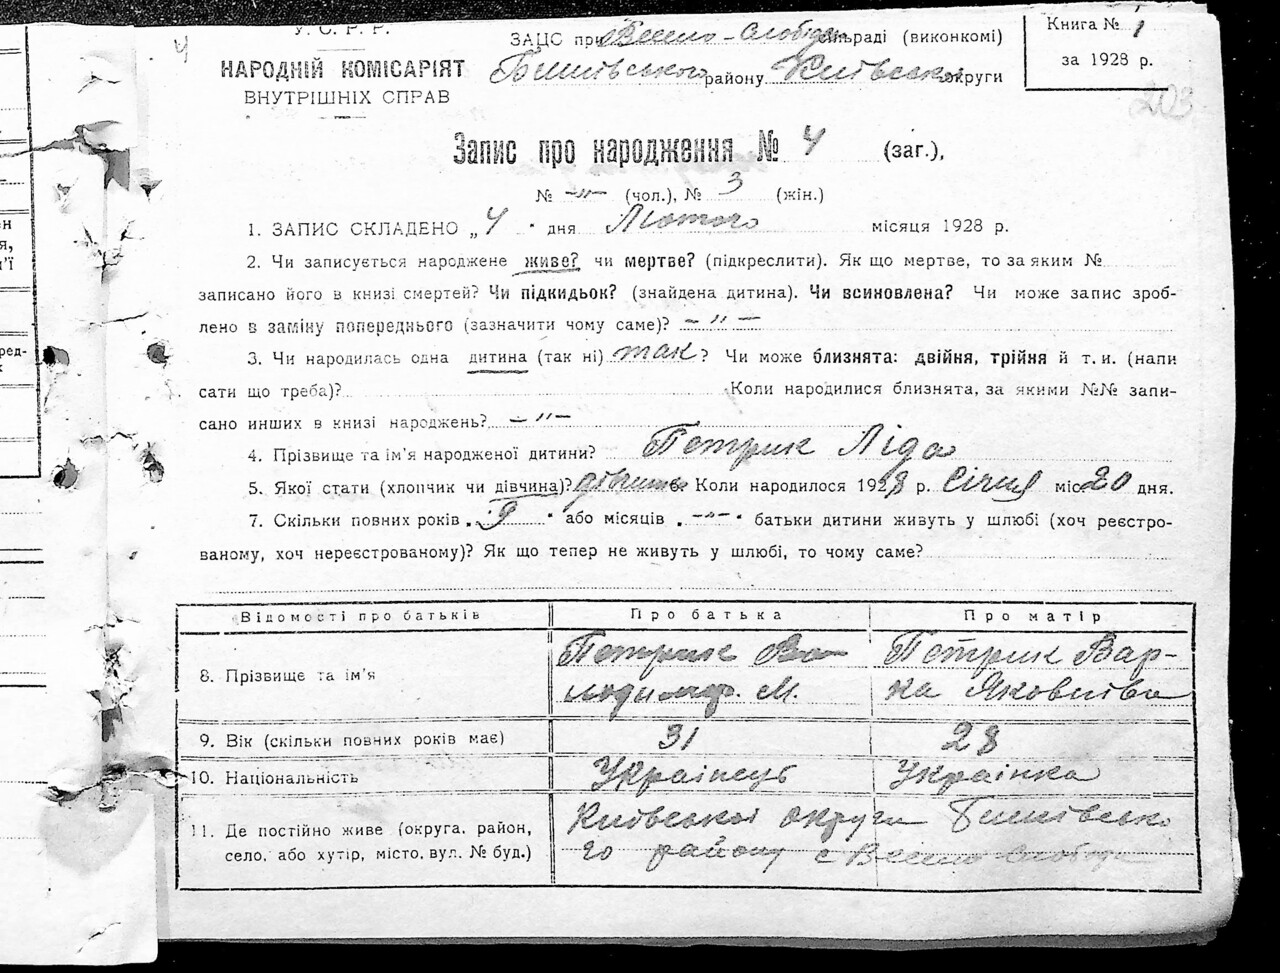 У. С. Р. Р.
НАРОДНІЙ КОМІСАРІЯТ
ВНУТРІШНІХ СПРАВ
ЗАЦС при Весело-Слобід. сільраді (виконкомі)
Бишівського району Київської округи
Книга № 1
за 1928 р.
203
4
Запис про народження № 4 (заг.),
№ -"- (чол.), № 3 (жін.)
1. ЗАПИС СКЛАДЕНО „4" дня Лютого місяця 1928 р.
2. Чи записується народжене живе? чи мертве? (підкреслити). Як що мертве, то за яким №
записано його в книзі смертей? Чи підкидьок? (знайдена дитина). Чи всиновлена? Чи може запис зроб-
лено в заміну попереднього (зазначити чому саме)? -"-
3. Чи народилась одна дитина (так ні) так? Чи може близнята: двійня, трійня й т. и. (напи
сати що треба)? Коли народилися близнята, за якими №№ запи-
сано инших в книзі народжень? -"-
4. Прізвище та ім'я народженої дитини? Петрик Ліда
5. Якої стати (хлопчик чи дівчина)? Коли народилося 1928 р. Січня міс. 20 дня.
7. Скільки повних років „9" або місяців „-"-" батьки дитини живуть у шлюбі (хоч реєстро-
ваному, хоч нереєстрованому)? Як що тепер не живуть у шлюбі, то чому саме?
Відомості про батьків Про батька Про матір
8. Прізвище та ім'я Петрик Во- Петрик Вар-
лодимир. М. ка Яковлівна
9. Вік (скільки повних років має) 31 28
10. Національність Украінець Украінка
11. Де постійно живе (округа, район, Київськоі округи Бишівсько
село, або хутір, місто, вул. № буд.) го району с Весело Слобода
н
я,
'ї
ред-
к